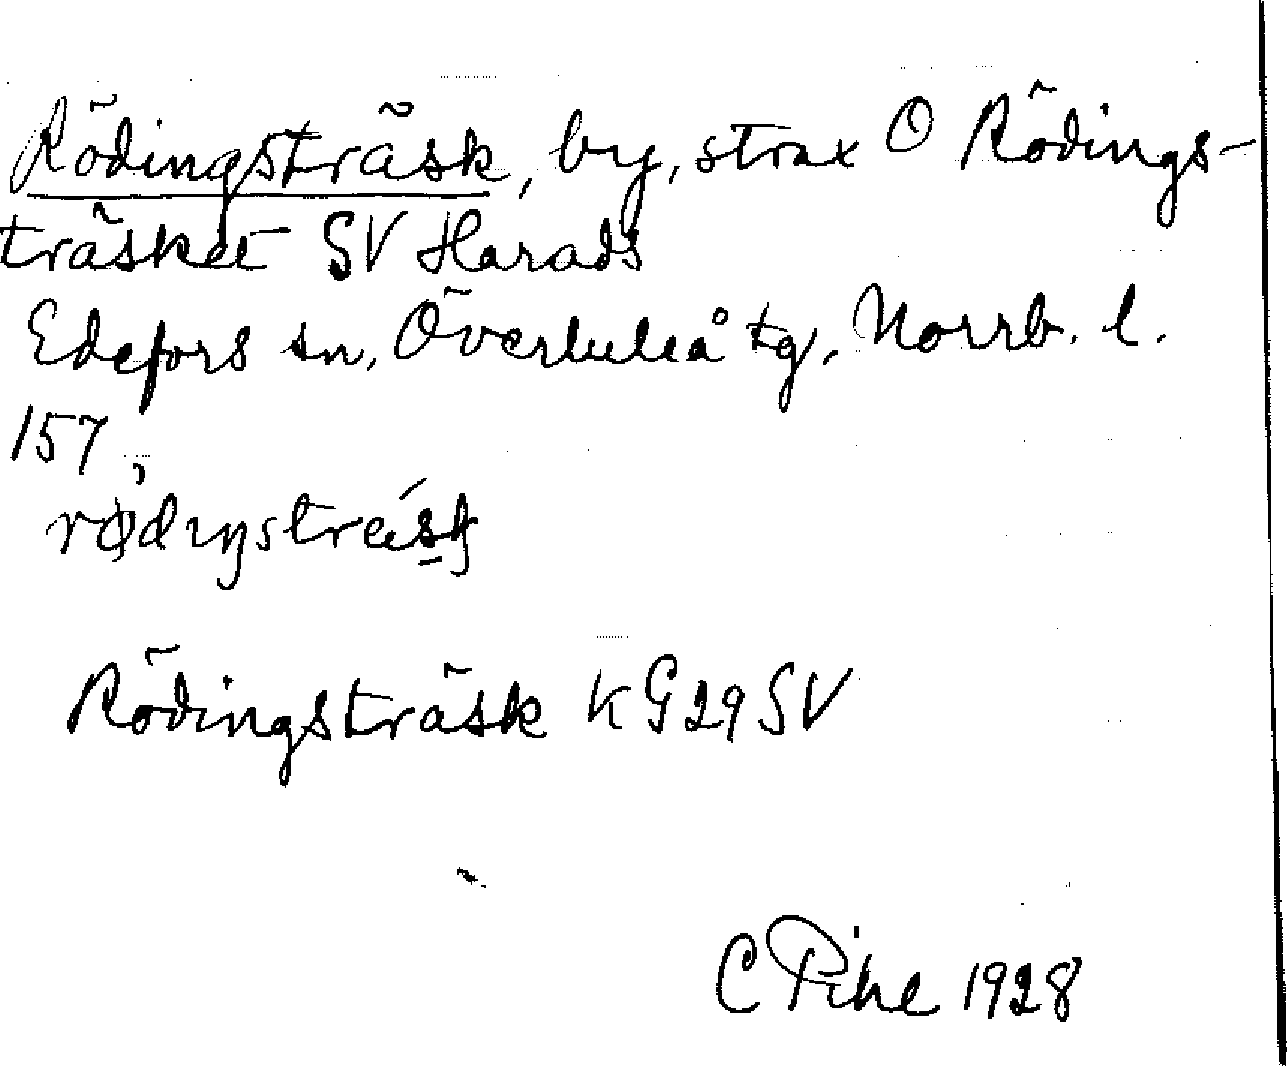 Rödingsträsk, by, strax O Rödings-
träsket SV Harads
Edefors sn, Överluleå tg, Norrb. l.
157
Rödingsträsk KG29SV
C Pihl 1928